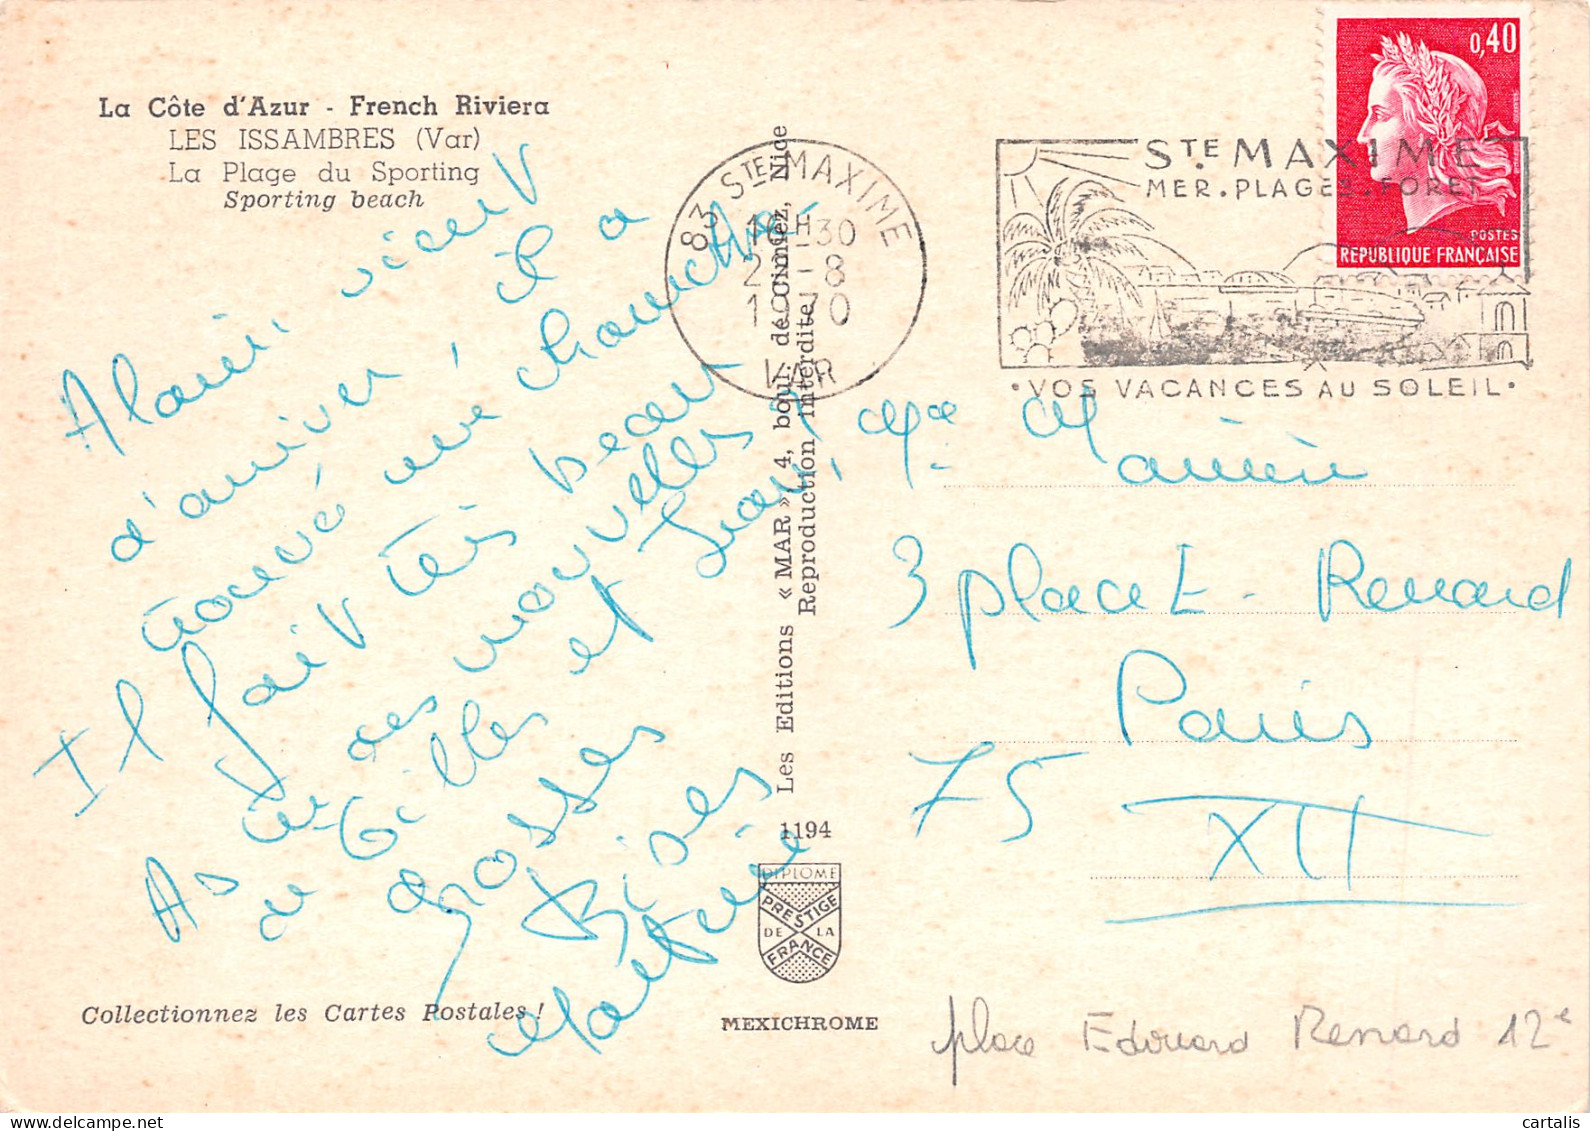 La Côte d'Azur - French Riviera
LES ISSAMBRES (Var)
La Plage du Sporting
Sporting beach
Alain vient
d'arriver, il a
trouvé une chambre.
Il fait très beau
As tu des nouvelles
de Gilles et Jean ?
grosses
Bises
Collectionnez les Cartes Postales !
Les Editions « MAR » 4, boul. de Cimiez, Nice
Reproduction interdite
1194
DIPLOME
PRESTIGE
DE LA
FRANCE
MEXICHROME
83 STE MAXIME
18H30
2 - 8
1970
VAR
STE MAXIME
MER. PLAGES. FORET
• VOS VACANCES AU SOLEIL •
0,40
POSTES
REPUBLIQUE FRANÇAISE
3 place E. Renard
Paris
75 XII
place Edouard Renard 12e
cartalis